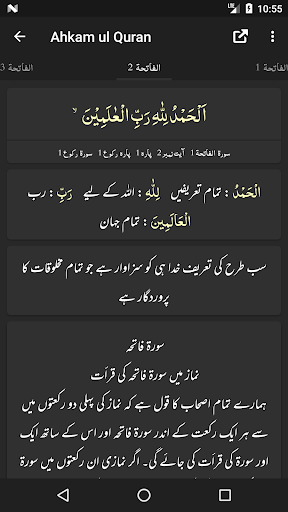 10:55
Ahkam ul Quran
الفاتحة 3
الفاتحة 2
الفاتحة 1
اَلْحَمْدُ لِلّٰهِ رَبِّ الْعٰلَمِیْنَ ۙ
سورۃ الفاتحۃ 1 آیت نمبر 2 پارہ 1 پارہ رکوع 1 سورۃ رکوع 1
الْحَمْدُ : تمام تعریفیں لِلّٰہِ : اللہ کے لیے رَبِّ : رب
الْعَالَمِينَ : تمام جہان
سب طرح کی تعریف خدا ہی کو سزاوار ہے جو تمام مخلوقات کا
پروردگار ہے
سورۃ فاتحہ
نماز میں سورۃ فاتحہ کی قرأت
ہمارے تمام اصحاب کا قول ہے کہ نماز کی پہلی دو رکعتوں میں
سے ہر ایک رکعت کے اندر سورۃ فاتحہ اور اس کے ساتھ ایک
اور سورۃ کی قرأت کی جائے گی۔ اگر نمازی ان رکعتوں میں سورۃ